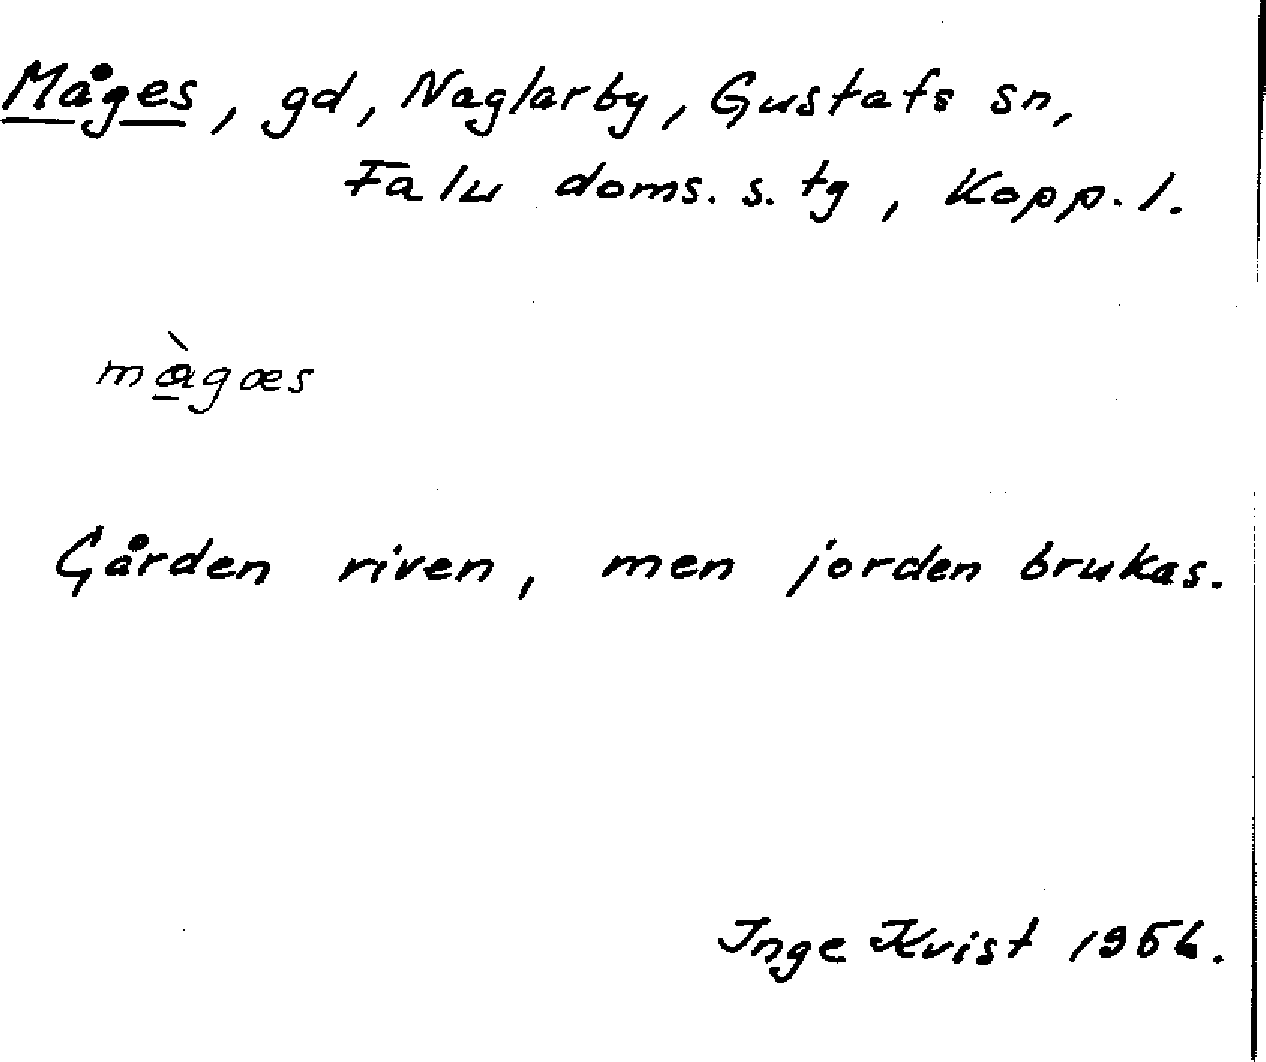 Måges, gd, Naglarby, Gustafs sn,
Falu doms. s. tg, Kopp. l.
må̀gæs
Gården riven, men jorden brukas.
Inge Kvist 1956.